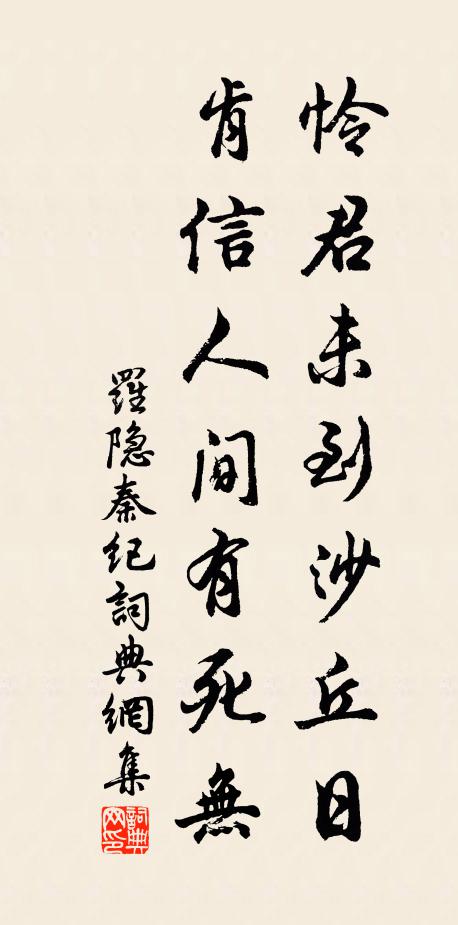 怜君未到沙丘日
肯信人间有死無
羅隐秦纪詞典網集
詞典网印